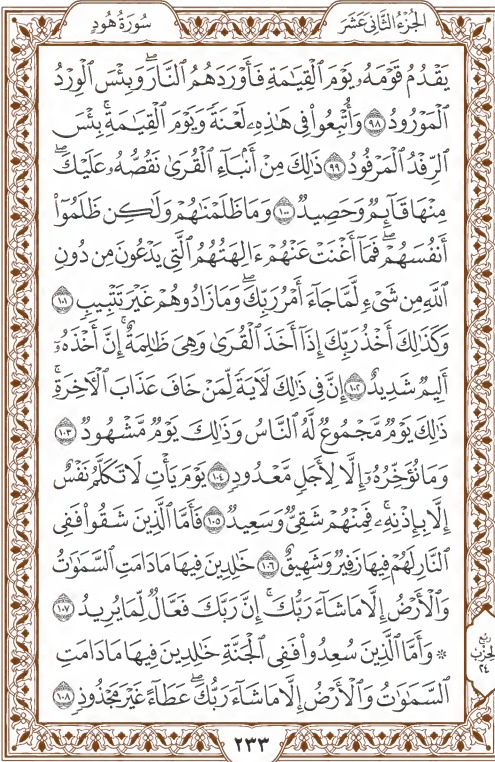 الجُزْءُ الثَّانِى عَشَرَ سُورَةُ هُودٍ
يَقْدُمُ قَوْمَهُۥ يَوْمَ ٱلْقِيَٰمَةِ فَأَوْرَدَهُمُ ٱلنَّارَۖ وَبِئْسَ ٱلْوِرْدُ
ٱلْمَوْرُودُ ٩٨ وَأُتْبِعُوا۟ فِى هَٰذِهِۦ لَعْنَةً وَيَوْمَ ٱلْقِيَٰمَةِۚ بِئْسَ
ٱلرِّفْدُ ٱلْمَرْفُودُ ٩٩ ذَٰلِكَ مِنْ أَنۢبَآءِ ٱلْقُرَىٰ نَقُصُّهُۥ عَلَيْكَۖ
مِنْهَا قَآئِمٌ وَحَصِيدٌ ١٠٠ وَمَا ظَلَمْنَٰهُمْ وَلَٰكِن ظَلَمُوٓا۟
أَنفُسَهُمْۖ فَمَآ أَغْنَتْ عَنْهُمْ ءَالِهَتُهُمُ ٱلَّتِى يَدْعُونَ مِن دُونِ
ٱللَّهِ مِن شَىْءٍ لَّمَّا جَآءَ أَمْرُ رَبِّكَۖ وَمَا زَادُوهُمْ غَيْرَ تَتْبِيبٍ ١٠١
وَكَذَٰلِكَ أَخْذُ رَبِّكَ إِذَآ أَخَذَ ٱلْقُرَىٰ وَهِىَ ظَٰلِمَةٌۚ إِنَّ أَخْذَهُۥٓ
أَلِيمٌ شَدِيدٌ ١٠٢ إِنَّ فِى ذَٰلِكَ لَءَايَةً لِّمَنْ خَافَ عَذَابَ ٱلْءَاخِرَةِۚ
ذَٰلِكَ يَوْمٌ مَّجْمُوعٌ لَّهُ ٱلنَّاسُ وَذَٰلِكَ يَوْمٌ مَّشْهُودٌ ١٠٣
وَمَا نُؤَخِّرُهُۥٓ إِلَّا لِأَجَلٍ مَّعْدُودٍ ١٠٤ يَوْمَ يَأْتِ لَا تَكَلَّمُ نَفْسٌ
إِلَّا بِإِذْنِهِۦۚ فَمِنْهُمْ شَقِىٌّ وَسَعِيدٌ ١٠٥ فَأَمَّا ٱلَّذِينَ شَقُوا۟ فَفِى
ٱلنَّارِ لَهُمْ فِيهَا زَفِيرٌ وَشَهِيقٌ ١٠٦ خَٰلِدِينَ فِيهَا مَا دَامَتِ ٱلسَّمَٰوَٰتُ
وَٱلْأَرْضُ إِلَّا مَا شَآءَ رَبُّكَۚ إِنَّ رَبَّكَ فَعَّالٌ لِّمَا يُرِيدُ ١٠٧
۞ وَأَمَّا ٱلَّذِينَ سُعِدُوا۟ فَفِى ٱلْجَنَّةِ خَٰلِدِينَ فِيهَا مَا دَامَتِ
ٱلسَّمَٰوَٰتُ وَٱلْأَرْضُ إِلَّا مَا شَآءَ رَبُّكَۖ عَطَآءً غَيْرَ مَجْذُوذٍ ١٠٨
ربع
الحزب
٢٤
٢٣٣